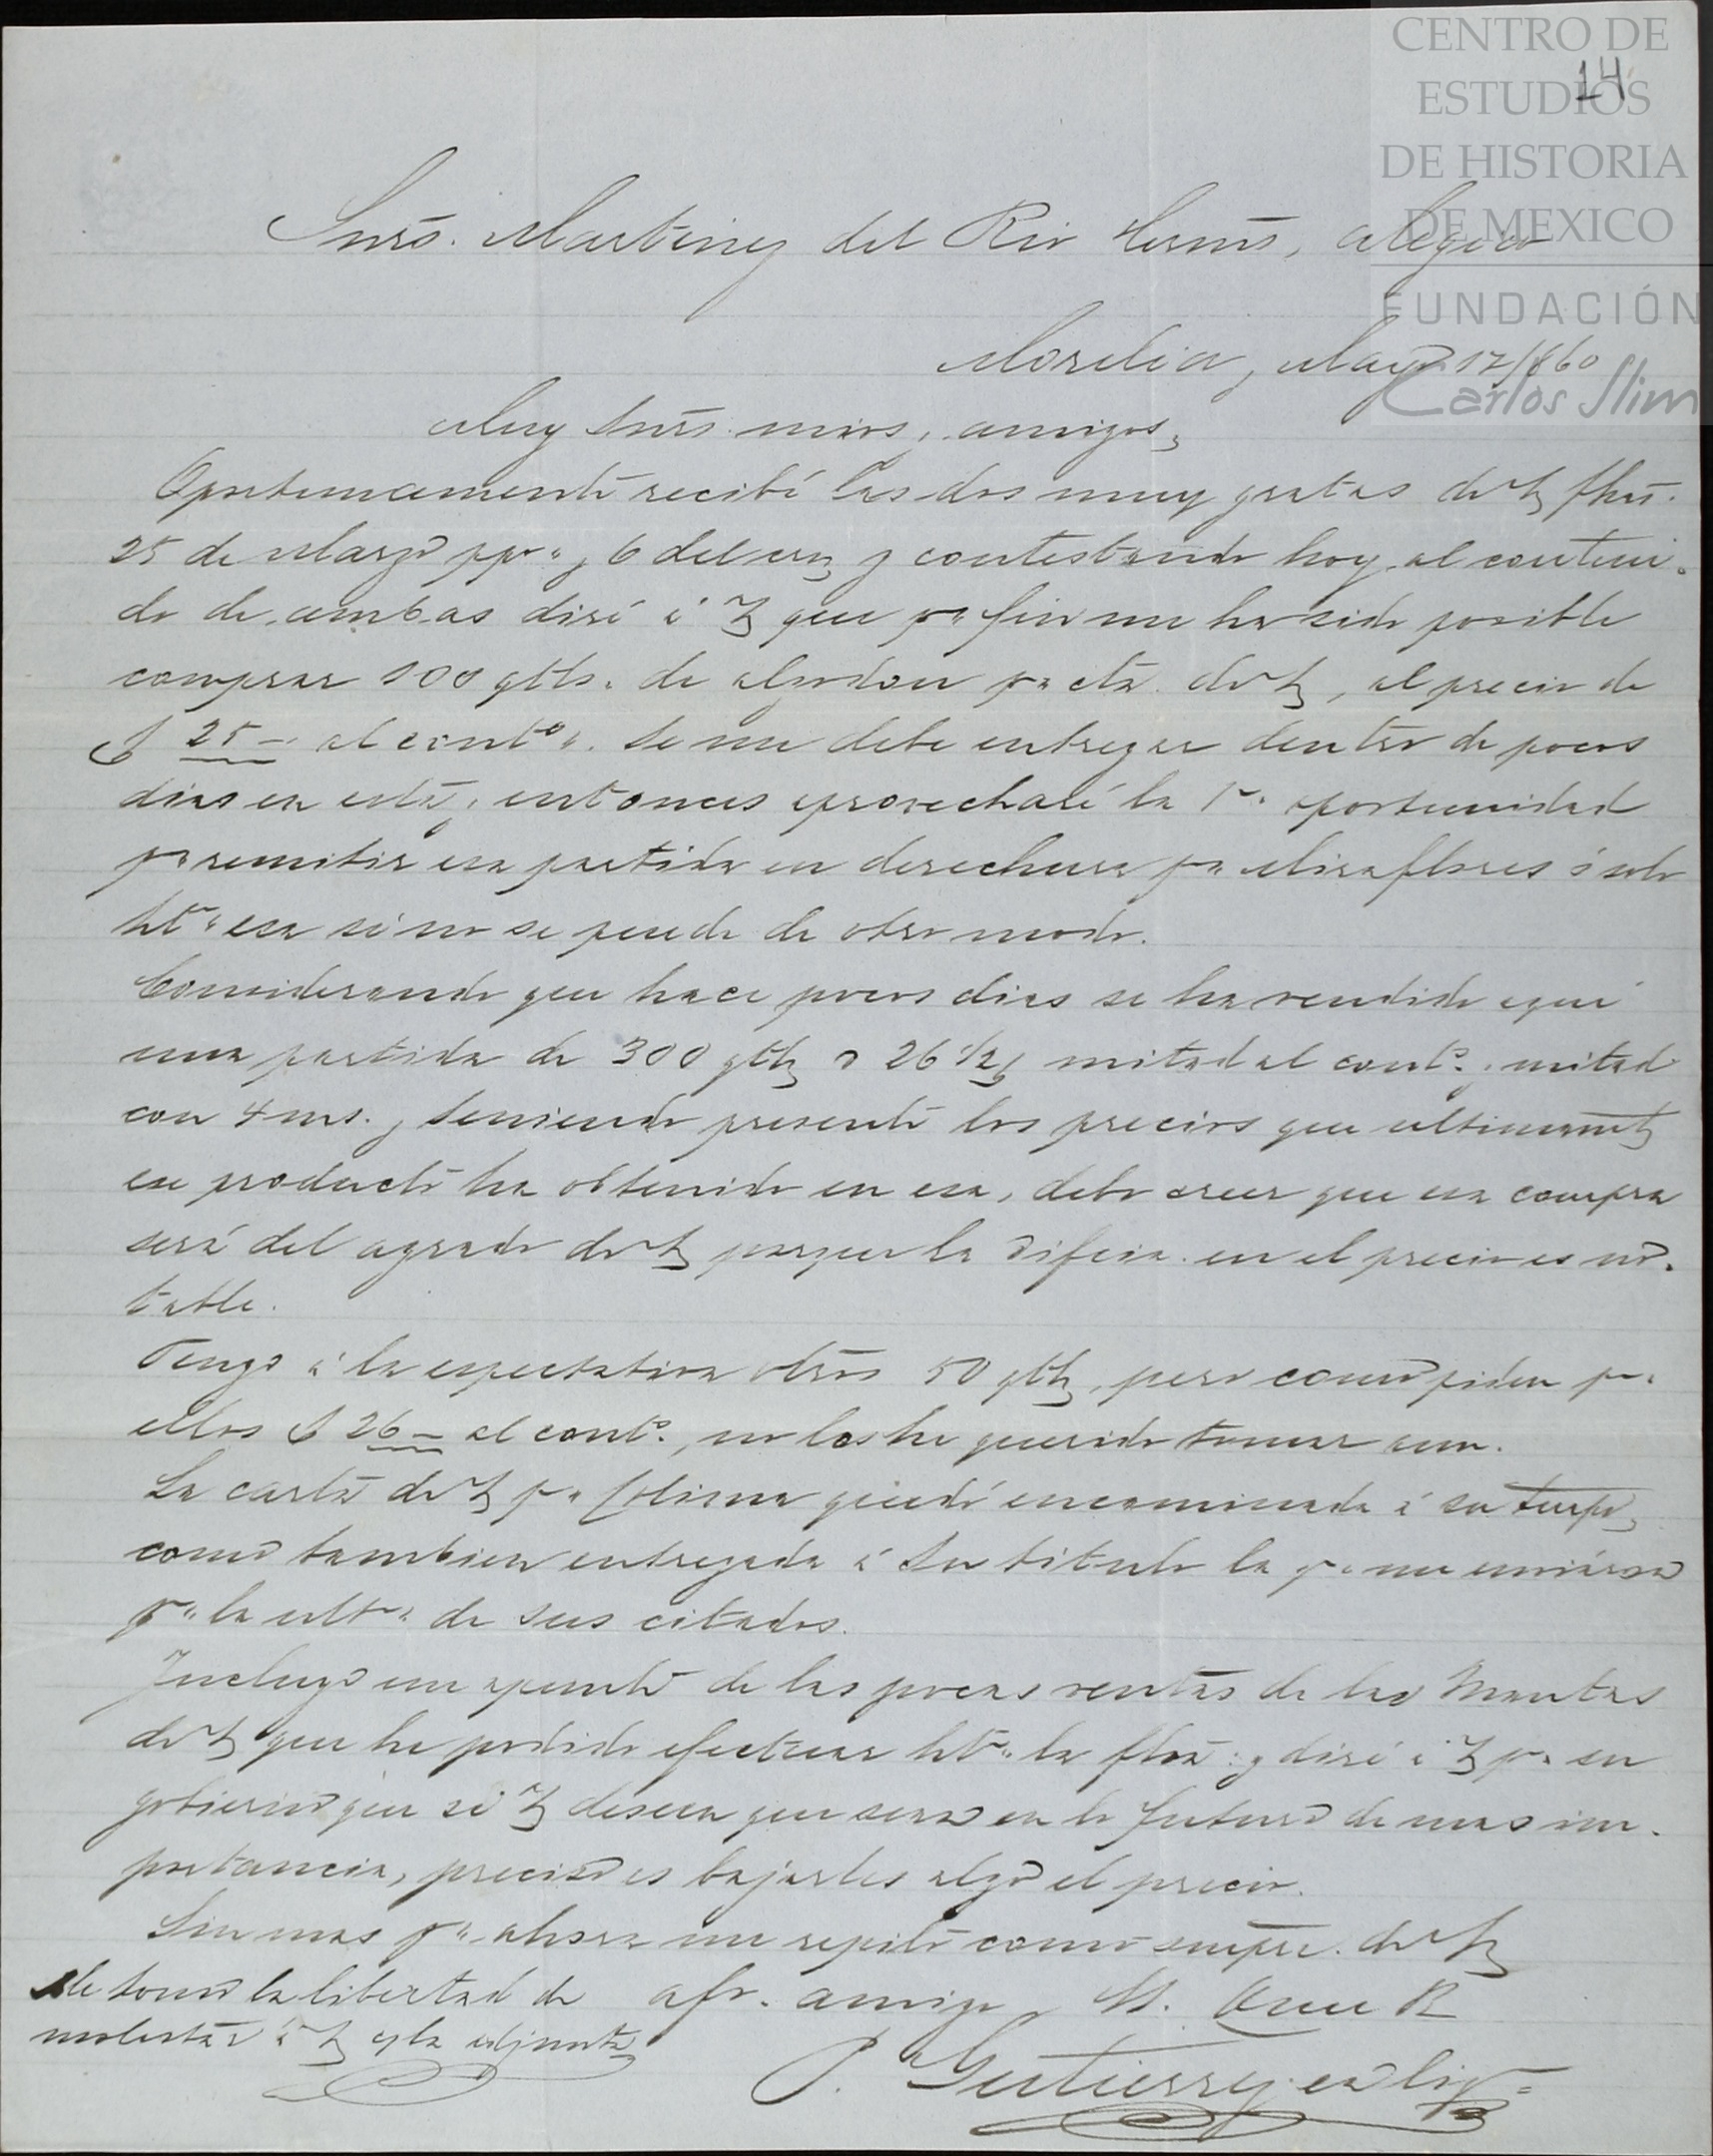 CENTRO DE
ESTUDIOS
DE HISTORIA
DE MEXICO
FUNDACIÓN
Carlos Slim
14
Snrs. Martinez del Rio Herms, Mejico
Morelia, Mayo 17/860
Muy Snrs. mios y amigos,
Oportunamente recibí las dos muy gratas de V fhas.
25 de Marzo ppo. y 6 del y contestando hoy al conteni-
do de ambas diré á V que pr. fin me ha sido posible
comprar 100 qtls. de algodon pr. cta. de V, al precio de
$ 25 - al contdo. Se me debe entregar dentro de pocos
dias en esta, y entonces aprovecharé la 1a. oportunidad
pa. remitir esa partida en derechura pa. Miraflores ó solo
hta. esa si no se puede de otro modo.
Considerando que hace pocos dias se ha vendido aquí
una partida de 300 qtls á 26 1/2 mitad al contdo. y mitad
con 4 ms. y teniendo presente los precios que ultimamte
ese producto ha obtenido en esa, debo creer que esa compra
será del agrado de V porque la difcia. en el precio es no-
table.
Tengo á la espectativa otros 50 qtls, pero como piden pr.
ellos $ 26 - al contdo., no los he querido tomar aun.
La carta de V pa. Colima quedó encaminada á su tiempo,
como tambien entregada á su titulo la qe. me enviaron
pr. la ulta. de sus citadas.
Incluyo un apunte de las pocas ventas de las Mantas
de V que he podido efectuar hta. la fha. y diré á V pa. su
gobierno que si V desean que sean en lo futuro de mas im-
portancia, preciso es bajarles algo el precio.
Sin mas pr. ahora me repito como siempre de V
afo. amigo y S.
Me tomo la libertad de
molestar á V con la adjunta
P. Gutierrez